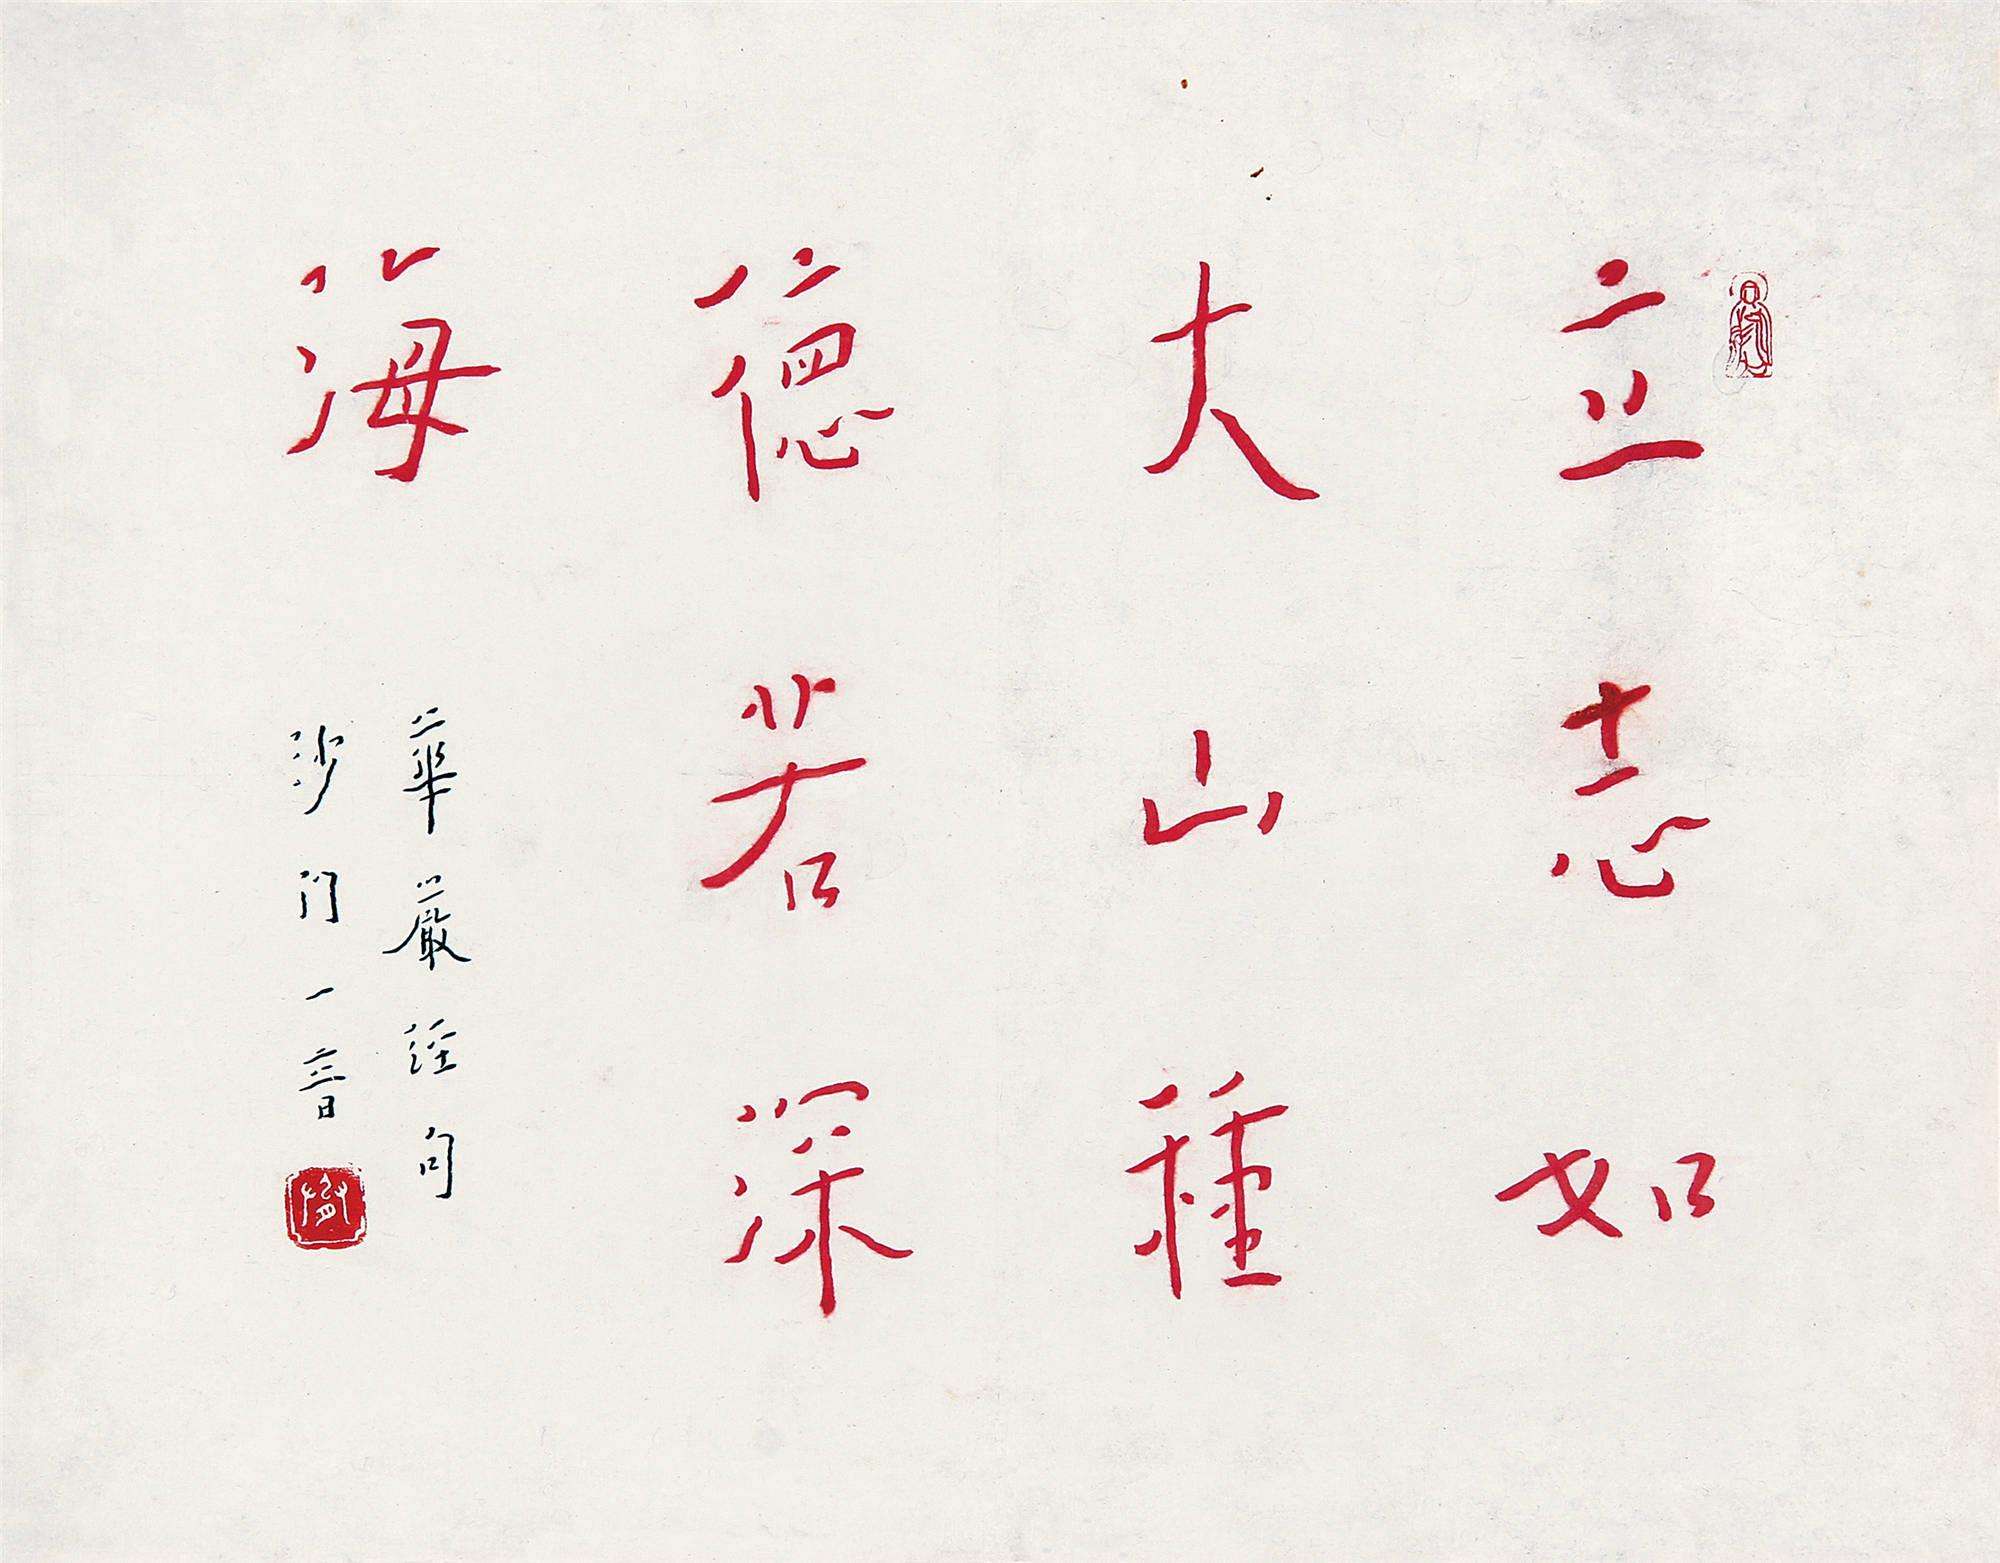 立志如
大山種
德若深
海
華嚴經句
沙門一音